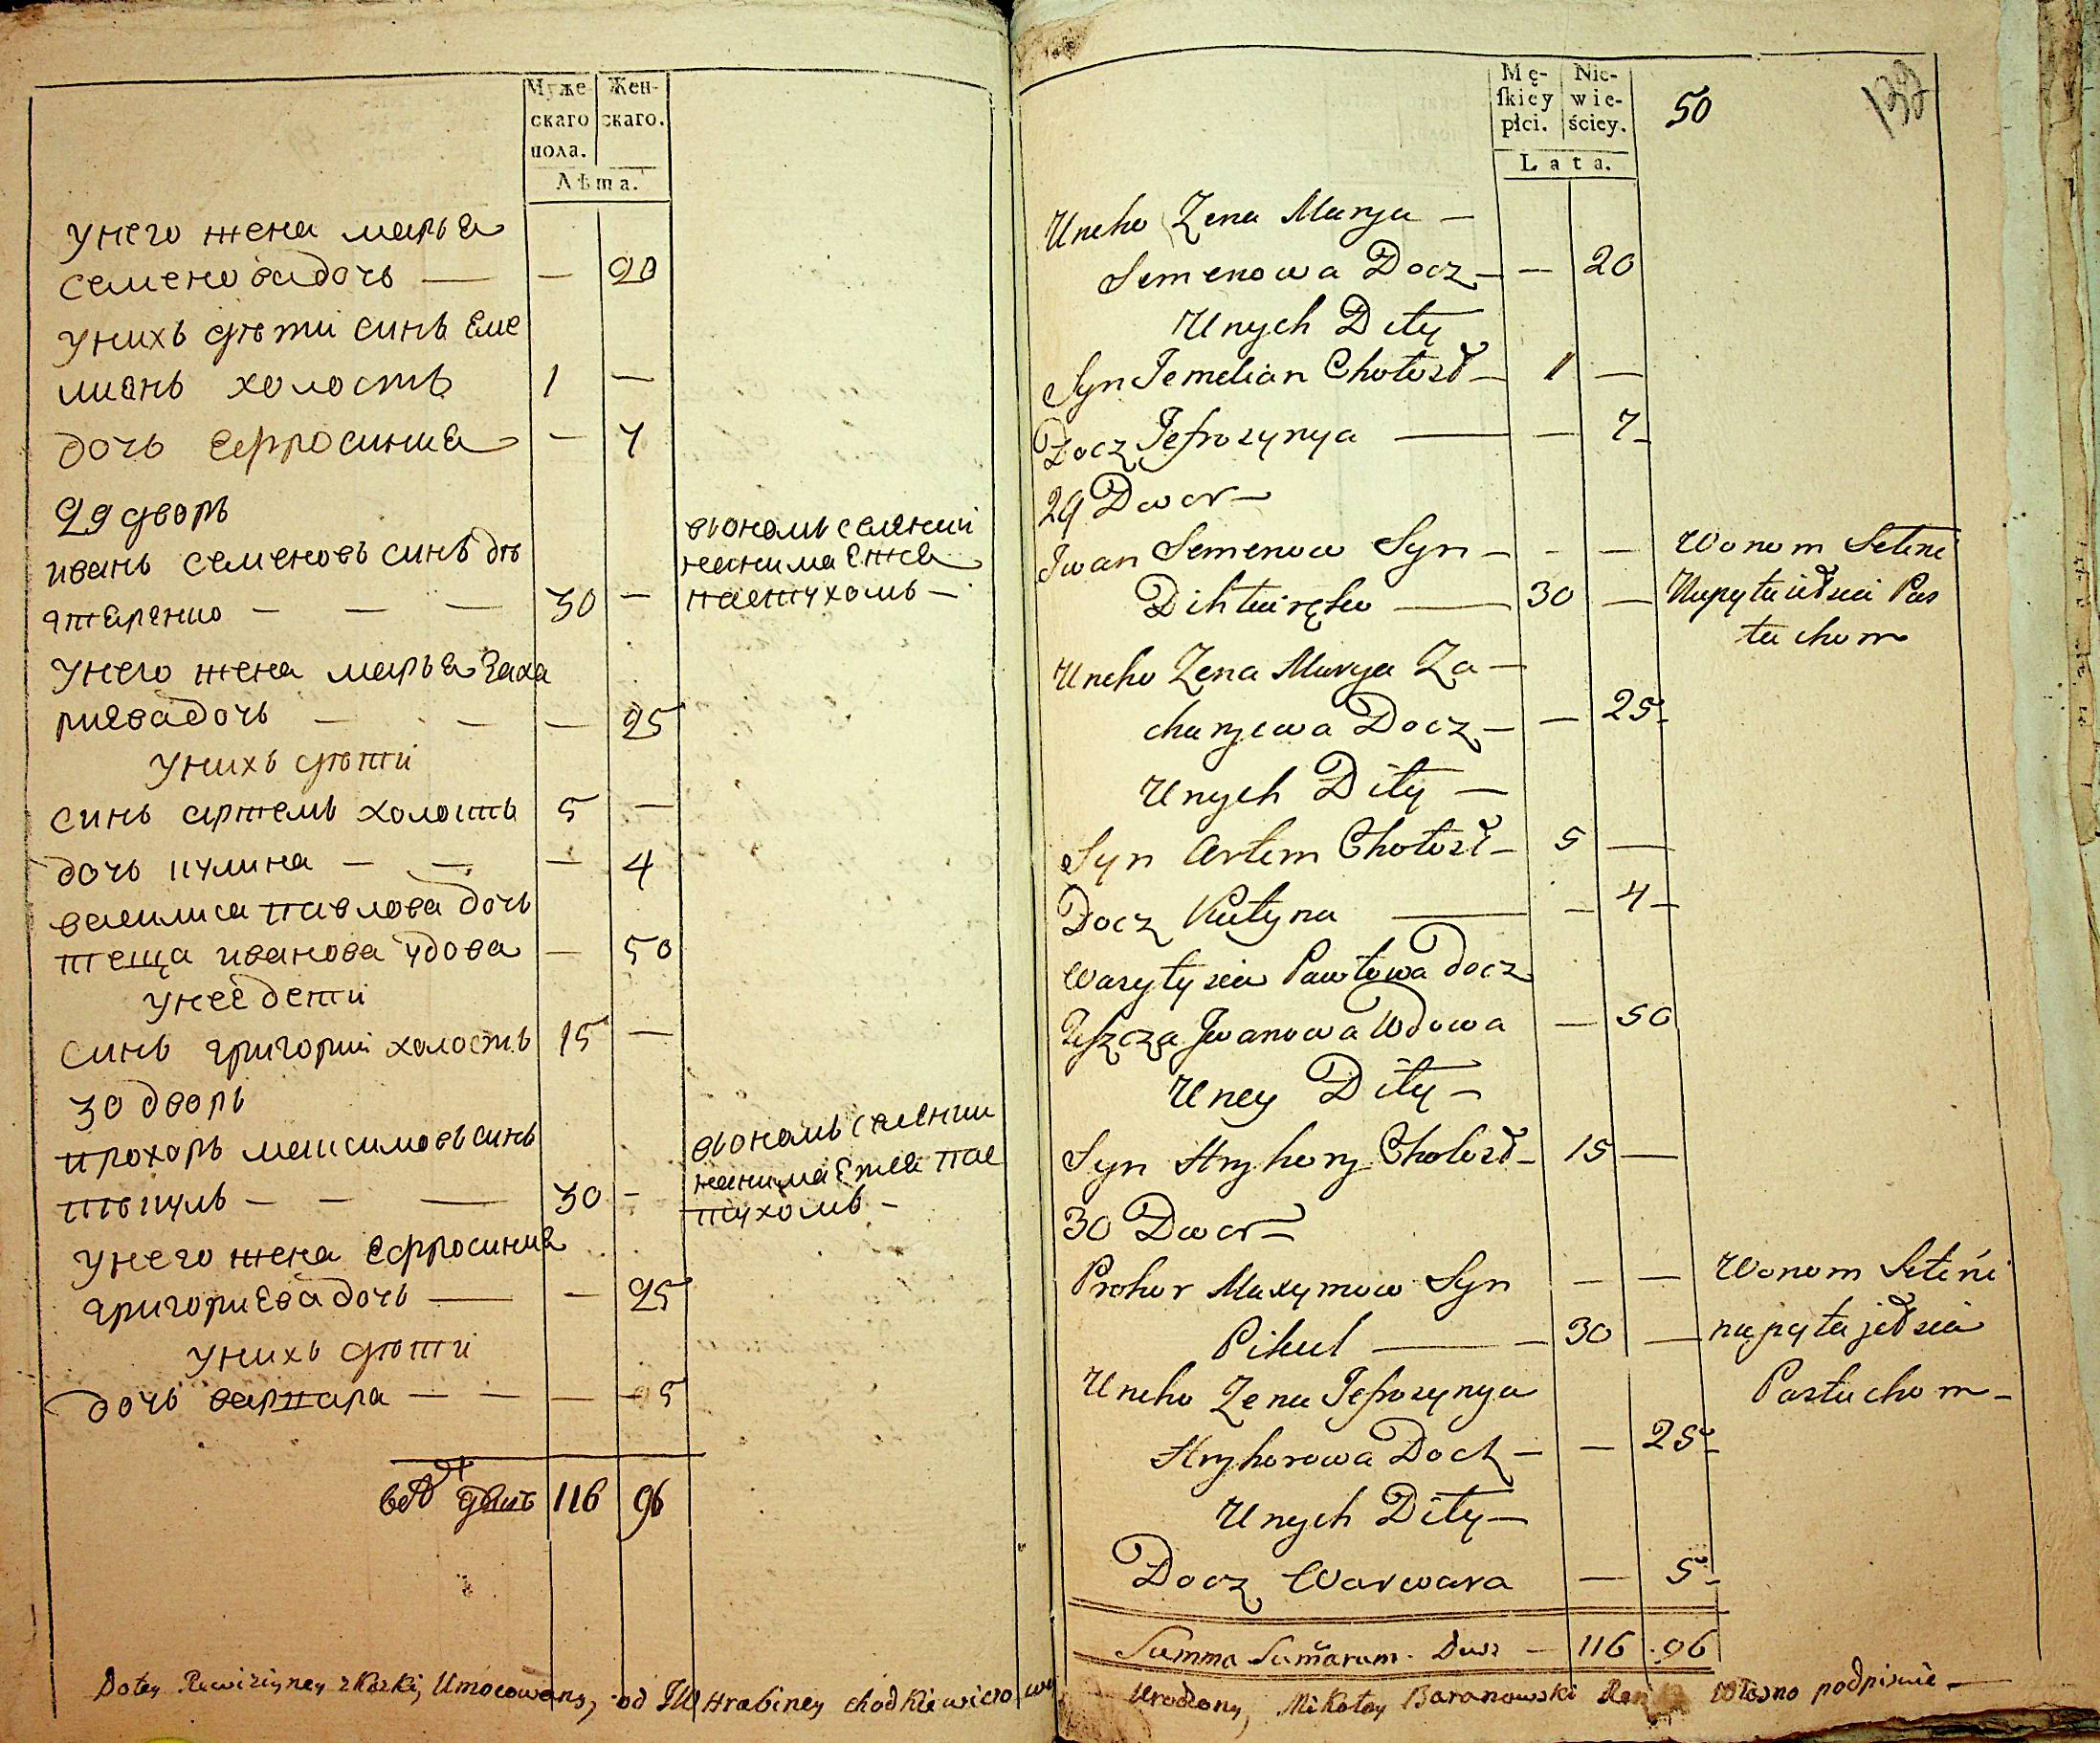 Муже
скаго
пола.
Жен-
скаго.
Лѣта.
унего жена марья
семенова дочь — — 20
унихъ дѣти синъ Еме
лианъ холостъ 1 —
дочь Ефросиния — 7
29 дворъ
иванъ семеновъ синъ дѣ
ятаренко — — — 30 —
вономъ селении
нанимаетса
пастухомъ —
унего жена марья Заха
риева дочь — — — 25
унихъ дѣти
синъ артемъ холостъ 5 —
дочь кулина — — — 4
василиса павлова дочь
теща иванова удова — 50
унее дети
синъ григорий холостъ 15 —
30 дворъ
прохоръ максимовъ синъ
пѣкуль — — — 30 —
вономъ селении
нанимаетса пас
тухомъ —
унего жена Ефросиния
григориева дочь — — 25
унихъ дѣти
дочь варвара — — — 5
душъ 116 96
Dotey Rewizyiney skazki, Umocowany, od JW Hrabiney chodkiewiczowey
Mę-
ſkiey
płci.
Nie-
wie-
ściey.
Lata.
50
Uneho Zena Marya —
Semenowa Docz — — 20
Unych Dity
Syn Jemelian Chołost — 1 —
Docz Jefrosynya — — 7 —
29 Dwor —
Iwan Semenow Syn — - —
30 —
Wonom Seleni
Pas
tuchom
Uneho Zena Marya Za —
charyewa Docz — — 25 —
Unych Dity —
Syn Artem Chołost — 5 —
Docz Kulyna — — 4 —
Wasylysia Pawłowa docz
Teszcza Iwanowa Wdowa — 50
Uney Dity —
Syn Hryhory Chołost — 15 —
30 Dwor —
Prohor Maxymow Syn — —
Pikul — 30 —
Wonom Seleni
Pastuchom —
Uneho Zena Jefrosynya
Hryhorowa Docz — — 25 —
Unych Dity —
Docz Warwara — 5 —
Summa Sumarum. Dusz — 116 . 96
Urodzony, Mikołay Baranowski Własno podpisuie —